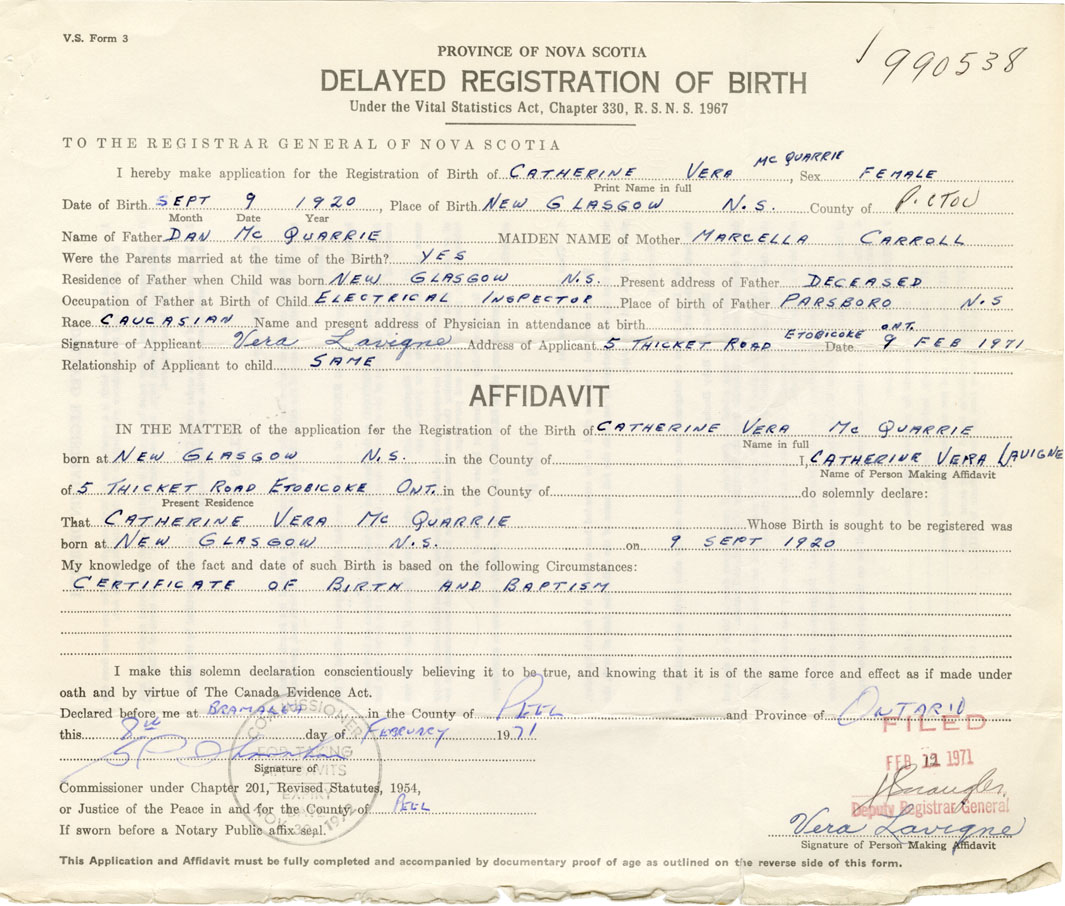 V.S. Form 3
1990538
PROVINCE OF NOVA SCOTIA
DELAYED REGISTRATION OF BIRTH
Under the Vital Statistics Act, Chapter 330, R.S.N.S. 1967
TO THE REGISTRAR GENERAL OF NOVA SCOTIA
I hereby make application for the Registration of Birth of CATHERINE VERA MC QUARRIE, Sex FEMALE
Print Name in full
Date of Birth SEPT 9 1920, Place of Birth NEW GLASGOW N.S. County of PICTOU
Month Date Year
Name of Father DAN MC QUARRIE MAIDEN NAME of Mother MARCELLA CARROLL
Were the Parents married at the time of the Birth? YES
Residence of Father when Child was born NEW GLASGOW N.S. Present address of Father DECEASED
Occupation of Father at Birth of Child ELECTRICAL INSPECTOR Place of birth of Father PARSBORO N.S
Race CAUCASIAN Name and present address of Physician in attendance at birth
Signature of Applicant Vera Lavigne Address of Applicant 5 THICKET ROAD ETOBICOKE ONT. Date 9 FEB 1971
Relationship of Applicant to child SAME
AFFIDAVIT
IN THE MATTER of the application for the Registration of the Birth of CATHERINE VERA MC QUARRIE
Name in full
born at NEW GLASGOW N.S. in the County of I, CATHERINE VERA LAVIGNE
Name of Person Making Affidavit
of 5 THICKET ROAD ETOBICOKE ONT. in the County of do solemnly declare:
Present Residence
That CATHERINE VERA MC QUARRIE Whose Birth is sought to be registered was
born at NEW GLASGOW N.S. on 9 SEPT 1920
My knowledge of the fact and date of such Birth is based on the following Circumstances:
CERTIFICATE OF BIRTH AND BAPTISM
I make this solemn declaration conscientiously believing it to be true, and knowing that it is of the same force and effect as if made under
oath and by virtue of The Canada Evidence Act.
Declared before me at BRAMALEA in the County of PEEL and Province of ONTARIO
this 8th day of FEBRUARY 1971
COMMISSIONER FOR TAKING AFFIDAVITS NOV. 1972
Signature of
Commissioner under Chapter 201, Revised Statutes, 1954,
or Justice of the Peace in and for the County of PEEL
If sworn before a Notary Public affix seal.
FILED
FEB 1971
Deputy Registrar General
Vera Lavigne
Signature of Person Making Affidavit
This Application and Affidavit must be fully completed and accompanied by documentary proof of age as outlined on the reverse side of this form.